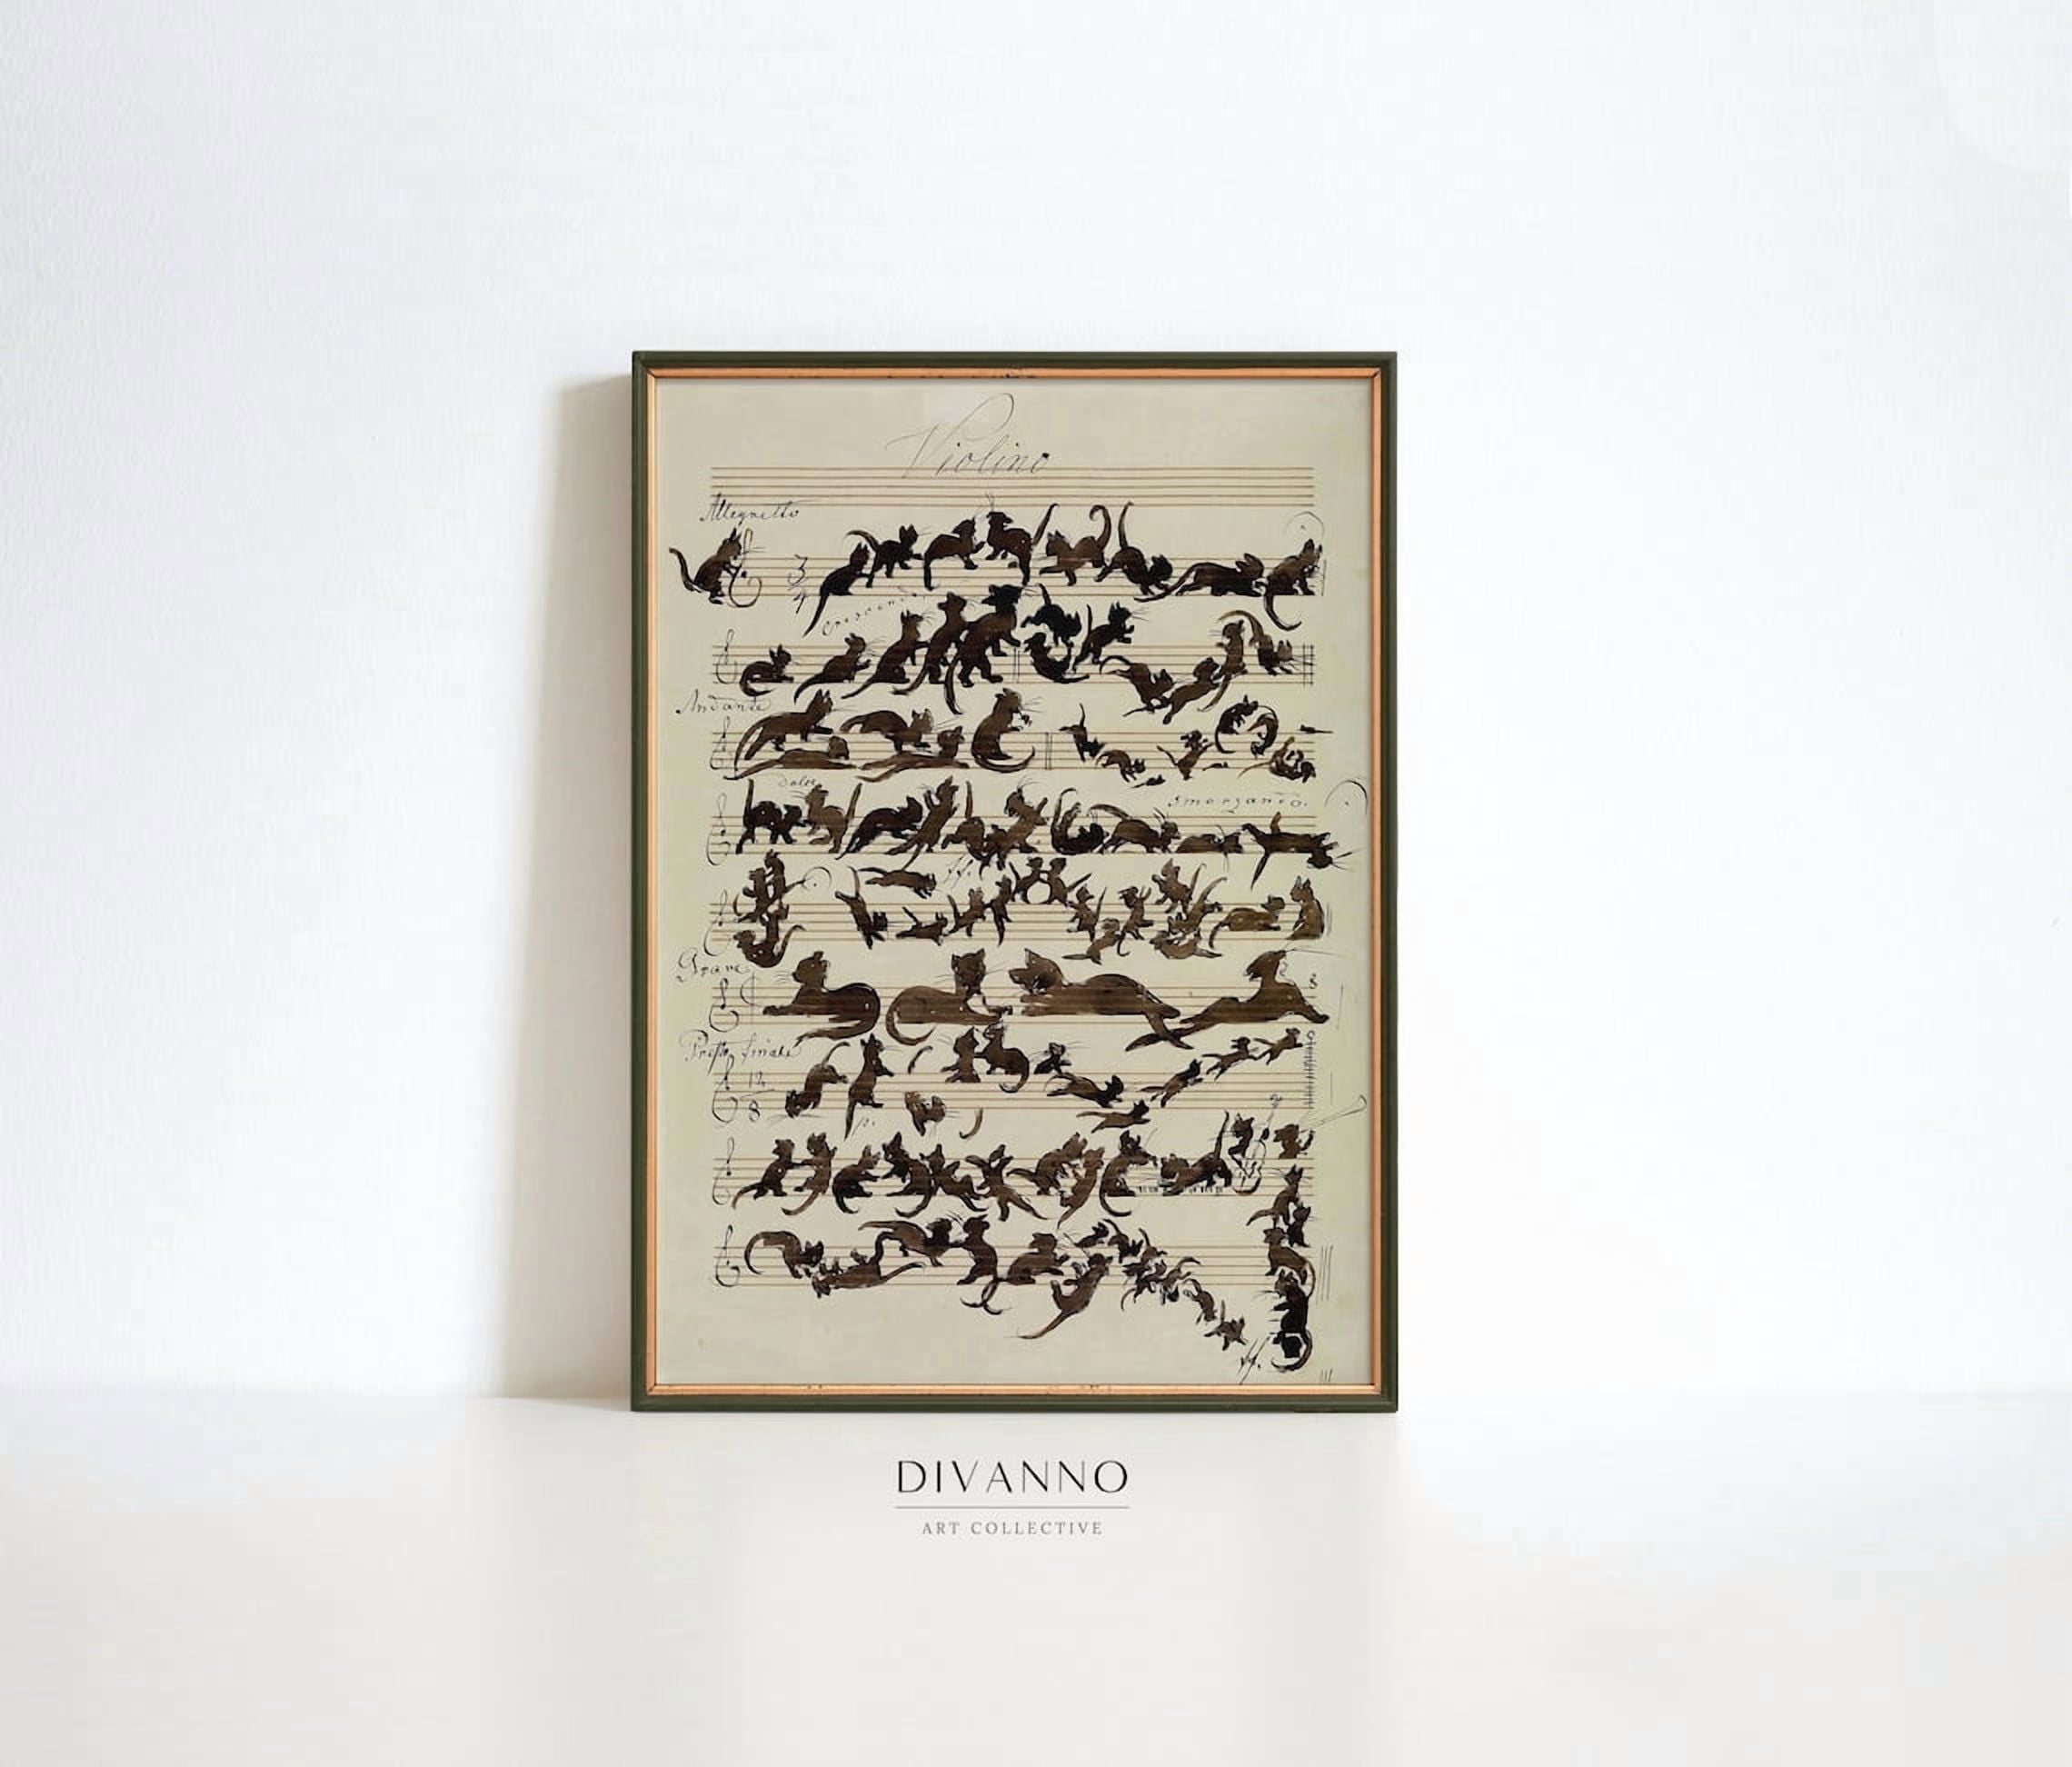 Violino
Allegretto
3
4
Crescendo
Andante
dolce
smorzando.
ff.
Grave
8
Presto finale
12
8
p.
ff.
DIVANNO
ART COLLECTIVE